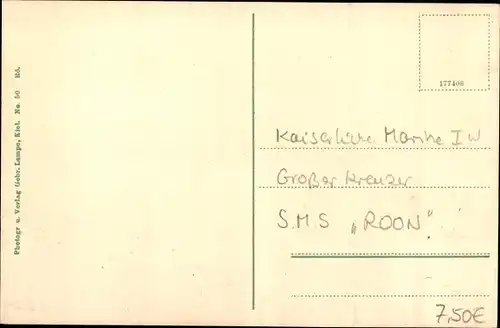 Photogr u. Verlag Gebr. Lempe, Kiel. No. 50 Rd.
177466
Kaiserliche Marine I W
Großer Kreuzer
S.M.S „ROON"
7,50€